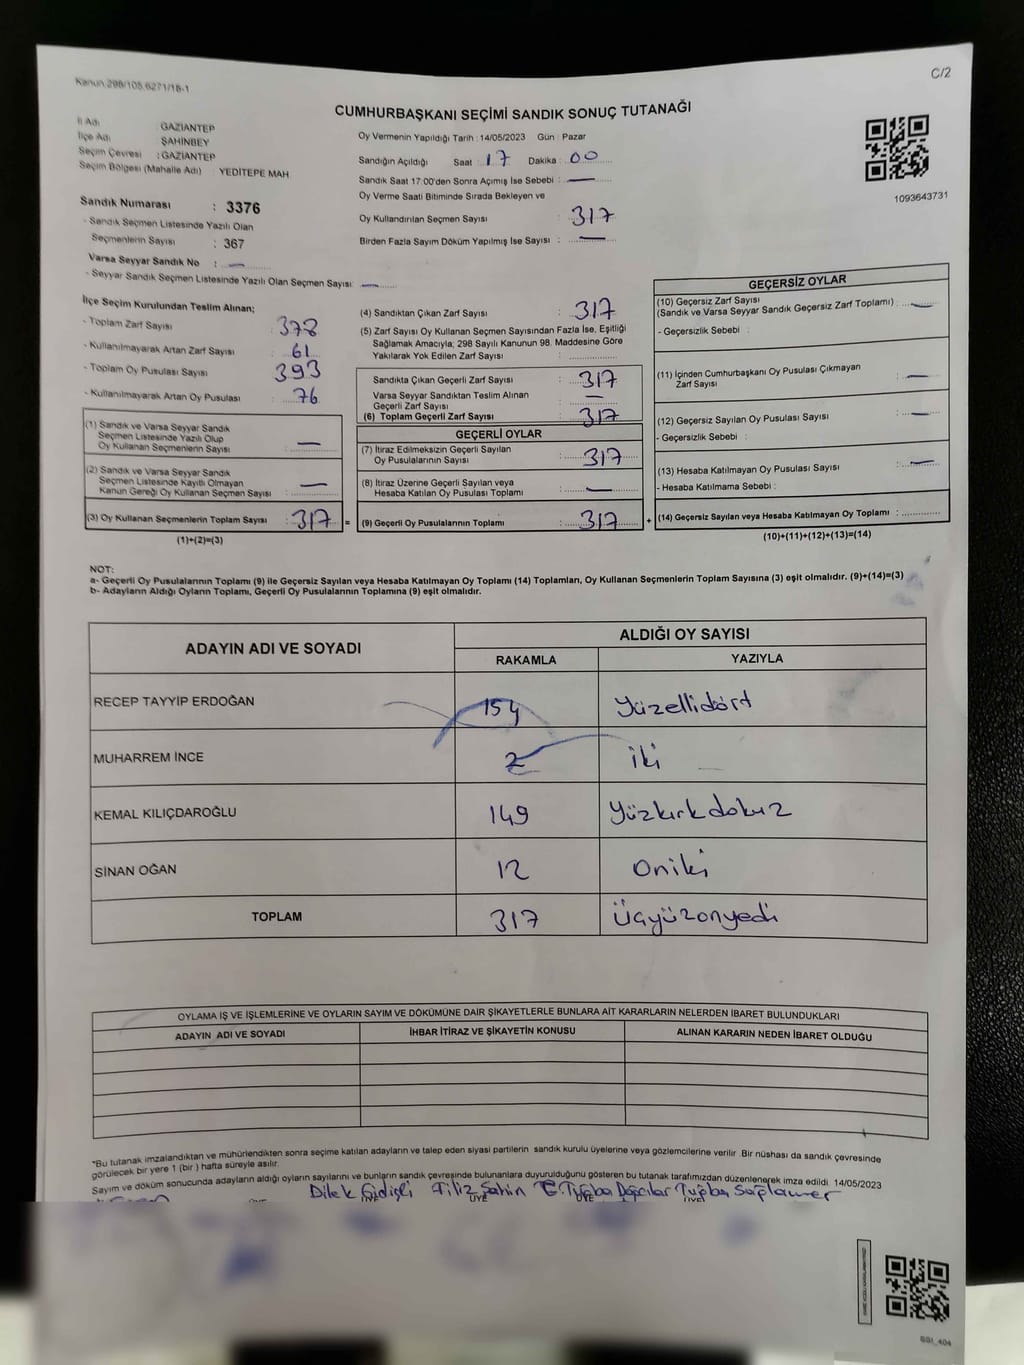 Kanun.298/105.6271/18-1
C/2
CUMHURBAŞKANI SEÇİMİ SANDIK SONUÇ TUTANAĞI
İl Adı : GAZİANTEP
İlçe Adı : ŞAHİNBEY
Seçim Çevresi : GAZİANTEP
Seçim Bölgesi (Mahalle Adı) : YEDİTEPE MAH.
Sandık Numarası : 3376
- Sandık Seçmen Listesinde Yazılı Olan
Seçmenlerin Sayısı : 367
Varsa Seyyar Sandık No : —
- Seyyar Sandık Seçmen Listesinde Yazılı Olan Seçmen Sayısı: —
Oy Vermenin Yapıldığı Tarih : 14/05/2023 Gün : Pazar
Sandığın Açıldığı Saat : 17 Dakika : 00
Sandık Saat 17:00'den Sonra Açımış İse Sebebi : —
Oy Verme Saati Bitiminde Sırada Bekleyen ve
Oy Kullandırılan Seçmen Sayısı 317
Birden Fazla Sayım Döküm Yapılmış İse Sayısı : —
1093643731
İlçe Seçim Kurulundan Teslim Alınan;
- Toplam Zarf Sayısı : 378
- Kullanılmayarak Artan Zarf Sayısı : 61
- Toplam Oy Pusulası Sayısı : 393
- Kullanılmayarak Artan Oy Pusulası : 76
(1) Sandık ve Varsa Seyyar Sandık
Seçmen Listesinde Yazılı Olup
Oy Kullanan Seçmenlerin Sayısı : —
(2) Sandık ve Varsa Seyyar Sandık
Seçmen Listesinde Kayıtlı Olmayan
Kanun Gereği Oy Kullanan Seçmen Sayısı : —
(3) Oy Kullanan Seçmenlerin Toplam Sayısı : 317 =
(1)+(2)=(3)
(4) Sandıktan Çıkan Zarf Sayısı : 317
(5) Zarf Sayısı Oy Kullanan Seçmen Sayısından Fazla İse, Eşitliği
Sağlamak Amacıyla; 298 Sayılı Kanunun 98. Maddesine Göre
Yakılarak Yok Edilen Zarf Sayısı :
Sandıkta Çıkan Geçerli Zarf Sayısı : 317
Varsa Seyyar Sandıktan Teslim Alınan
Geçerli Zarf Sayısı : —
(6) Toplam Geçerli Zarf Sayısı : 317
GEÇERLİ OYLAR
(7) İtiraz Edilmeksizin Geçerli Sayılan
Oy Pusulalarının Sayısı : 317
(8) İtiraz Üzerine Geçerli Sayılan veya
Hesaba Katılan Oy Pusulası Toplamı : —
(9) Geçerli Oy Pusulalarının Toplamı : 317 +
GEÇERSİZ OYLAR
(10) Geçersiz Zarf Sayısı
(Sandık ve Varsa Seyyar Sandık Geçersiz Zarf Toplamı) : —
- Geçersizlik Sebebi :
(11) İçinden Cumhurbaşkanı Oy Pusulası Çıkmayan
Zarf Sayısı : —
(12) Geçersiz Sayılan Oy Pusulası Sayısı : —
- Geçersizlik Sebebi :
(13) Hesaba Katılmayan Oy Pusulası Sayısı : —
- Hesaba Katılmama Sebebi :
(14) Geçersiz Sayılan veya Hesaba Katılmayan Oy Toplamı :
(10)+(11)+(12)+(13)=(14)
NOT:
a- Geçerli Oy Pusulalarının Toplamı (9) ile Geçersiz Sayılan veya Hesaba Katılmayan Oy Toplamı (14) Toplamları, Oy Kullanan Seçmenlerin Toplam Sayısına (3) eşit olmalıdır. (9)+(14)=(3)
b- Adayların Aldığı Oyların Toplamı, Geçerli Oy Pusulalarının Toplamına (9) eşit olmalıdır.
ADAYIN ADI VE SOYADI ALDIĞI OY SAYISI
RAKAMLA YAZIYLA
RECEP TAYYİP ERDOĞAN 154 Yüzellidört
MUHARREM İNCE 2 iki
KEMAL KILIÇDAROĞLU 149 Yüzkırkdokuz
SİNAN OĞAN 12 Oniki
TOPLAM 317 Üçyüzonyedi
OYLAMA İŞ VE İŞLEMLERİNE VE OYLARIN SAYIM VE DÖKÜMÜNE DAİR ŞİKAYETLERLE BUNLARA AİT KARARLARIN NELERDEN İBARET BULUNDUKLARI
ADAYIN ADI VE SOYADI İHBAR İTİRAZ VE ŞİKAYETİN KONUSU ALINAN KARARIN NEDEN İBARET OLDUĞU
*Bu tutanak imzalandıktan ve mühürlendikten sonra seçime katılan adayların ve talep eden siyasi partilerin sandık kurulu üyelerine veya gözlemcilerine verilir. Bir nüshası da sandık çevresinde
görülecek bir yere 1 (bir ) hafta süreyle asılır.
Sayım ve döküm sonucunda adayların aldığı oyların sayılarını ve bunların sandık çevresinde bulunanlara duyurulduğunu gösteren bu tutanak tarafımızdan düzenlenerek imza edildi. 14/05/2023
Dilek Filiz Şahin Tuğba Tuğba
ÜYE ÜYE ÜYE ÜYE
SSI_404